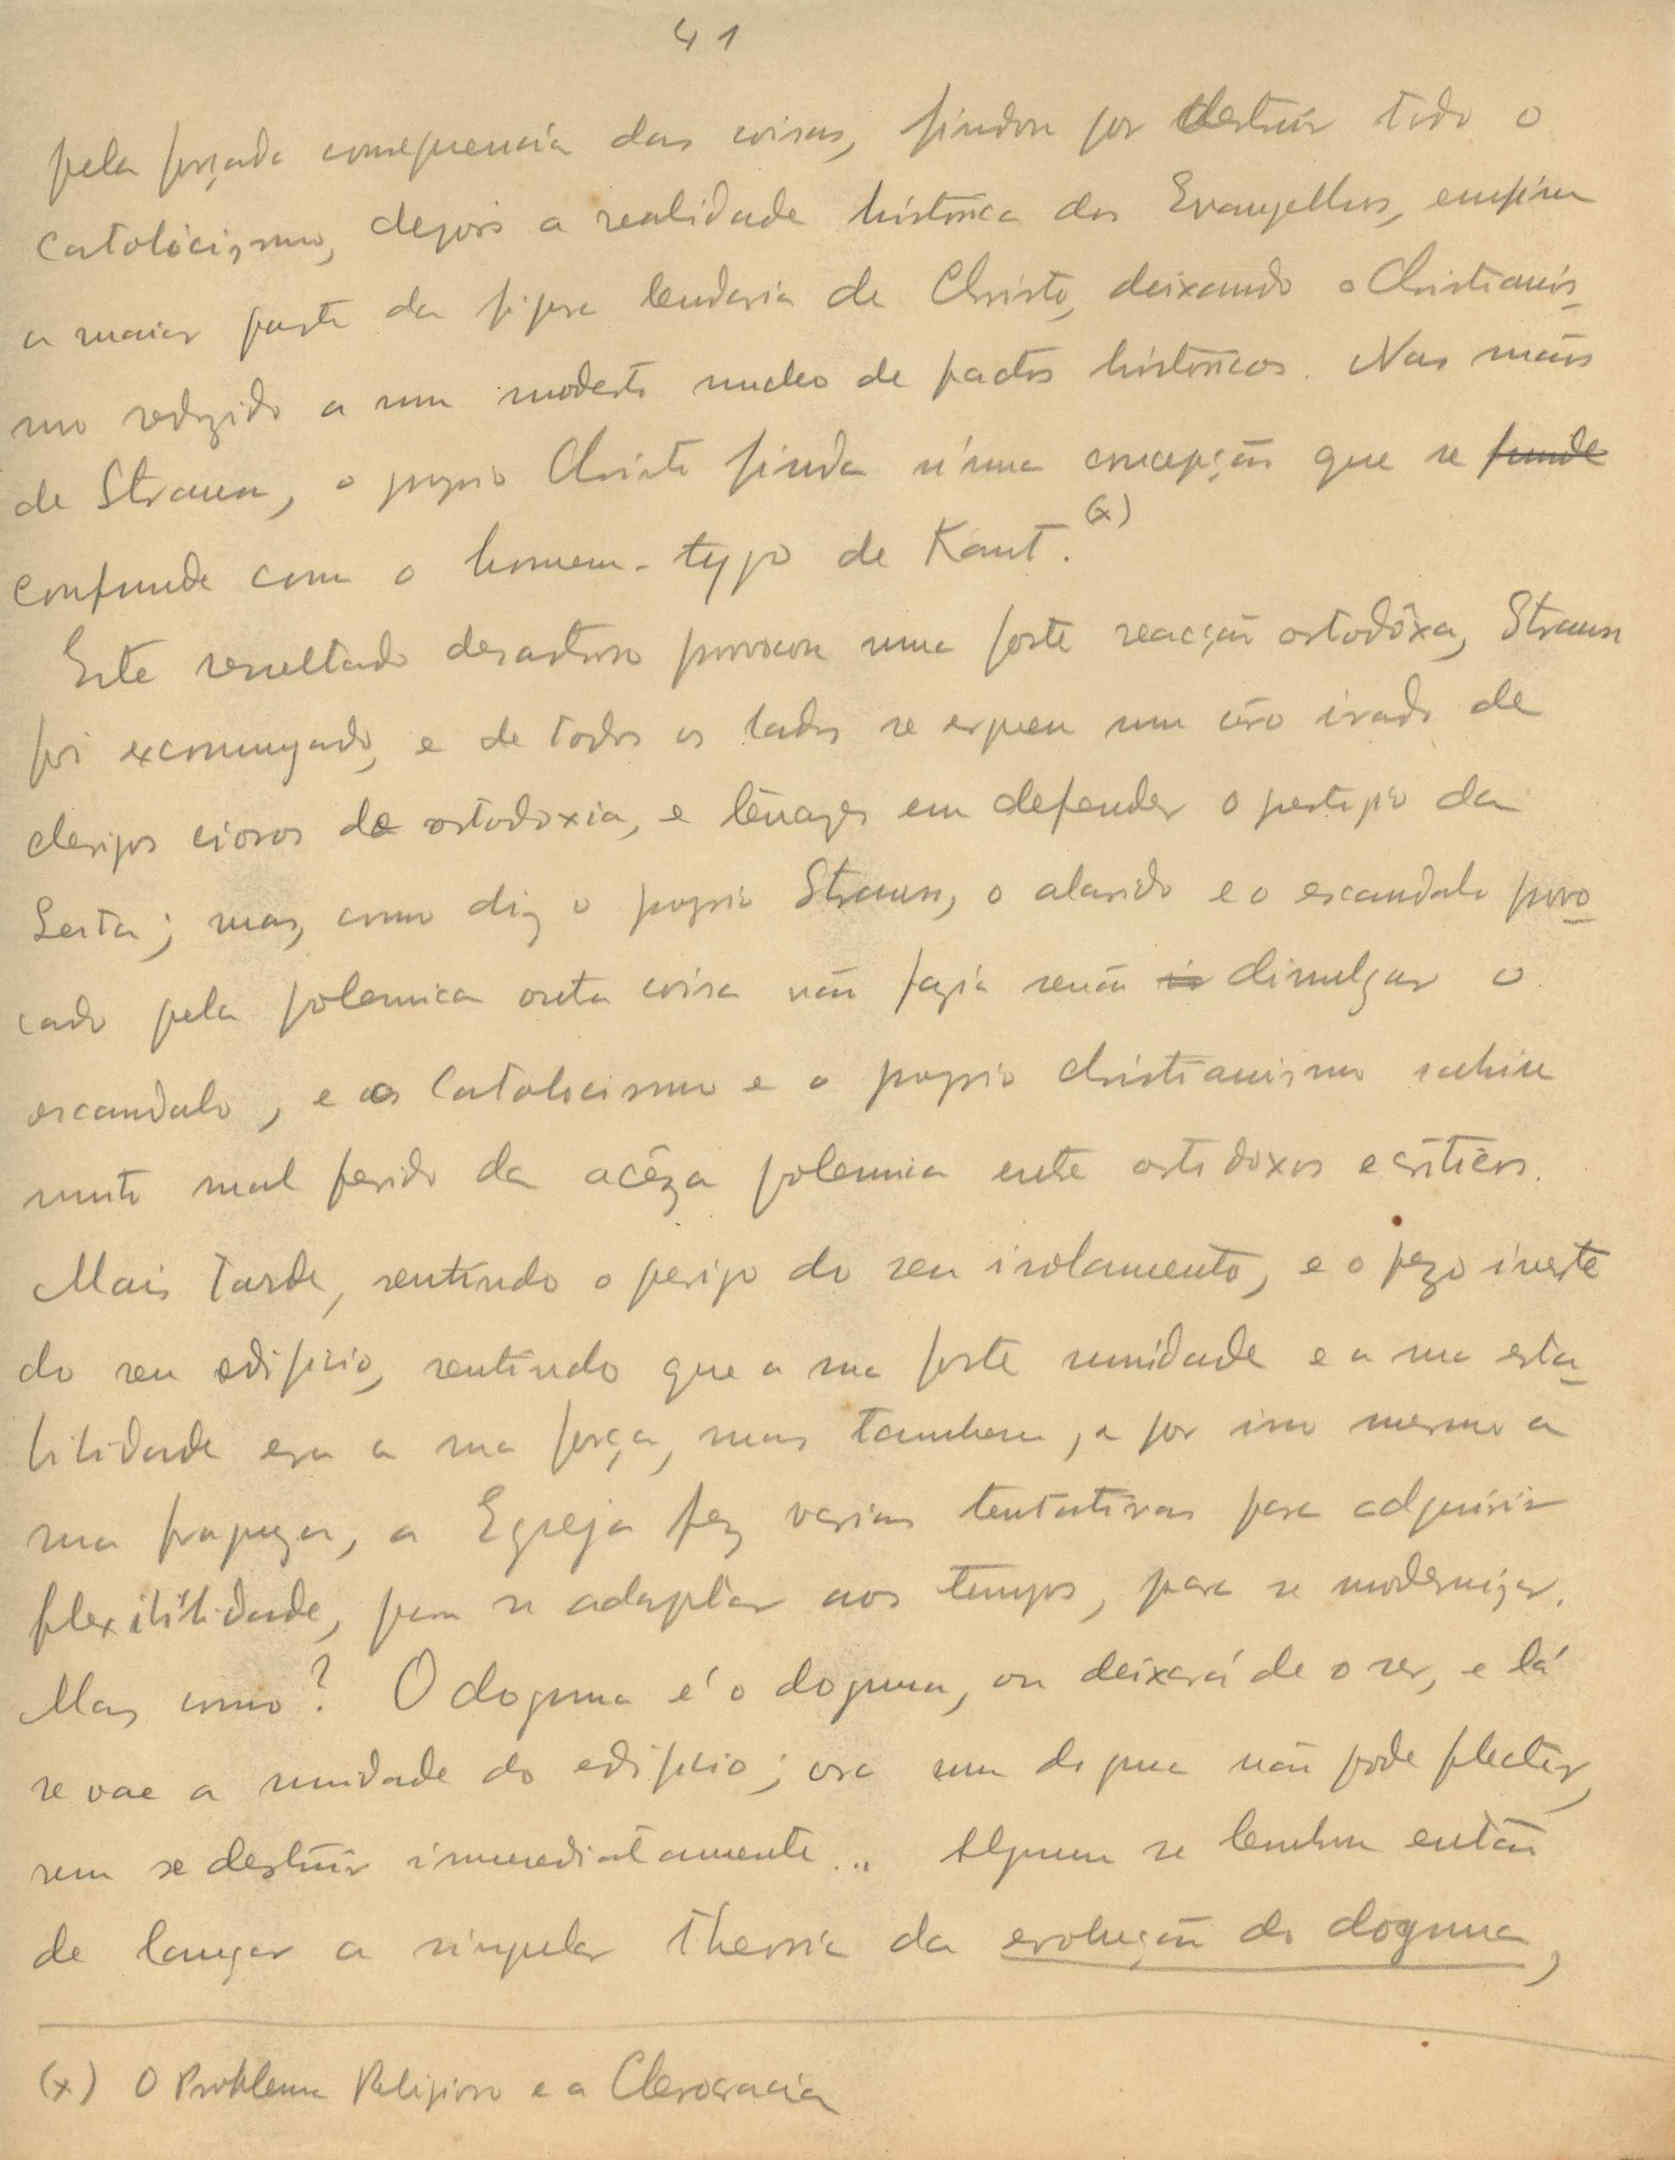 41
pela forçada consequencia das coisas, findou por destruir todo o
catolicismo, depois a realidade histórica dos Evangelhos, emfim
a maior parte da figura lendaria de Christo, deixando o Christianis-
mo reduzido a um modesto nucleo de factos históricos. Nas mãos
de Strauss, o proprio Christo finda n'uma concepção que se funde
confunde com o homem-typo de Kant. (x)
Este resultado desastroso provocou uma forte reacção ortodóxa, Strauss
foi excomungado, e de todos os lados se ergueu um côro irado de
clerigos ciosos da ortodoxia, e tenazes em defender o prestigio da
Seita; mas, como diz o proprio Strauss, o alarido e o escandalo provo-
cado pela polemica outra coisa não fazia senão divulgar o
escandalo, e o Catolicismo e o proprio christianismo sahiu
muito mal ferido da acêza polemica entre ortodoxos e críticos.
Mais tarde, sentindo o perigo do seu isolamento, e o pezo inerte
do seu edificio, sentindo que a sua forte unidade e a sua esta-
bilidade era a sua força, mas tambem, e por isso mesmo a
sua fraqueza, a Egreja fez varias tentativas para adquirir
flexibilidade, para se adaptar aos tempos, para se modernizar.
Mas como? O dogma é o dogma, ou deixará de o ser, e lá
se vae a unidade do edificio; ora um dogma não póde flectir,
sem se destruir immediatamente... Alguem se lembrou então
de lançar a singular theoria da evolução do dogma,
(x) O Problema Religioso e a Clerocracia